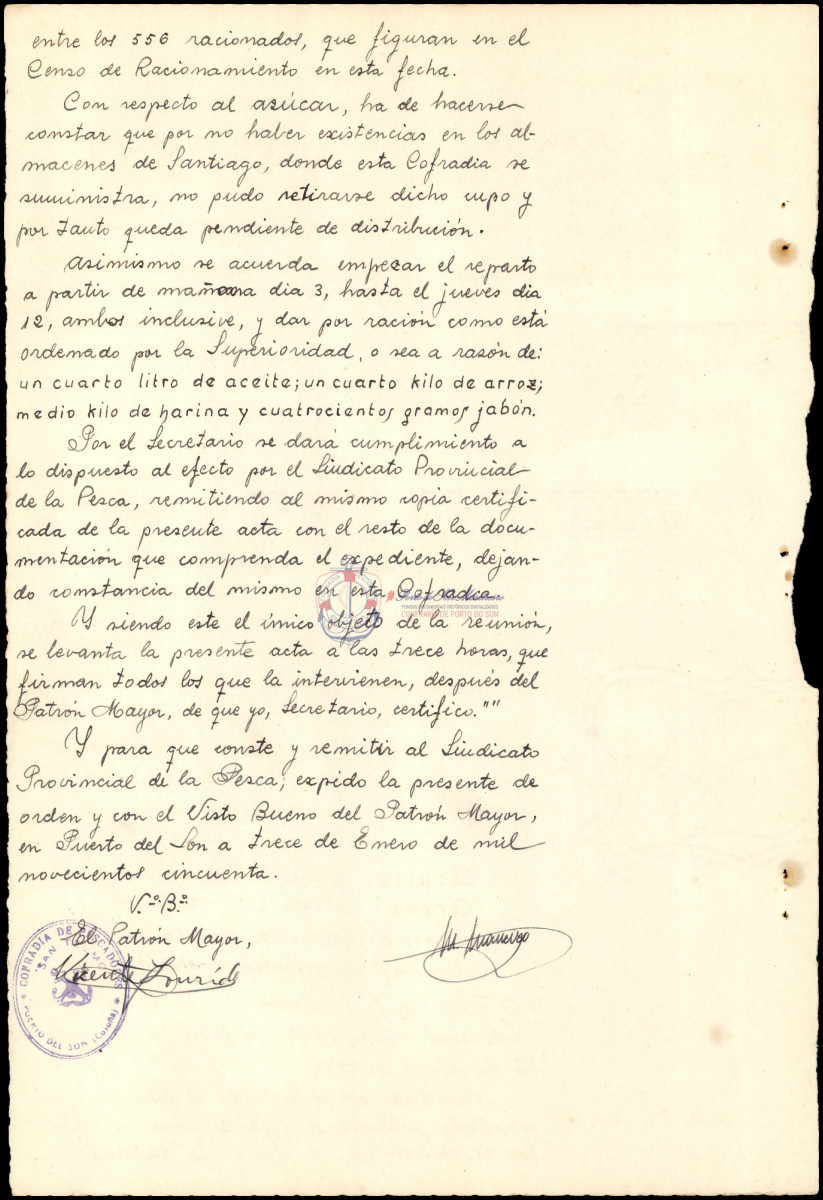 entre los 556 racionados, que figuran en el
Censo de Racionamiento en esta fecha.
Con respecto al azúcar, ha de hacerse
constar que por no haber existencias en los al-
macenes de Santiago, donde esta Cofradia se
suministra, no pudo retirarse dicho cupo y
por tanto queda pendiente de distribución.
Asimismo se acuerda empezar el reparto
a partir de mañana dia 3, hasta el jueves dia
12, ambos inclusive, y dar por ración como está
ordenado por la Superioridad, o sea a razón de:
un cuarto litro de aceite; un cuarto kilo de arroz;
medio kilo de harina y cuatrocientos gramos jabón.
Por el Secretario se dará cumplimiento a
lo dispuesto al efecto por el Sindicato Provincial
de la Pesca, remitiendo al mismo copia certifi-
cada de la presente acta con el resto de la docu-
mentación que comprenda el expediente, dejan-
do constancia del mismo en esta Cofradia.
FONDOS DOCUMENTAIS HISTÓRICOS DIXITALIZADOS
CONFRARÍA DE PORTO DO SON
Y siendo este el único objeto de la reunión,
se levanta la presente acta a las trece horas, que
firman todos los que la intervienen, después del
Patrón Mayor, de que yo, Secretario, certifico.""
Y para que conste y remitir al Sindicato
Provincial de la Pesca, expido la presente de
orden y con el Visto Bueno del Patrón Mayor,
en Puerto del Son a trece de Enero de mil
novecientos cincuenta.
V.º B.º
El Patrón Mayor,
Vicente Lourido
COFRADIA DE PESCADORES
SAN TELMO
PUERTO DEL SON (Coruña)